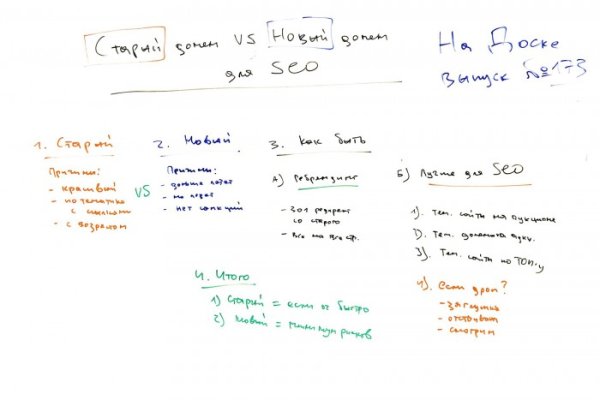 Старый домен VS Новый домен
для SEO
На Доске
выпуск №173
1. Старый
Причины:
- красивый
- по тематике
с ссылками
- с возрастом
VS
2. Новый
Причины:
- дольше
- нет санкций
3. Как быть
А) Ребрендинг
- 301 редирект
со старого
- Все на все стр.
Б) Лучше для SEO
1). Тем. сайты на аукционе
2). Тем. домены
3). Тем. сайты по ТОП-у
4). если дроп?
- загрузка
- отстаивать
- смотрим
4. Итого
1) Старый = если оч быстро
2) Новый = минимум рисков